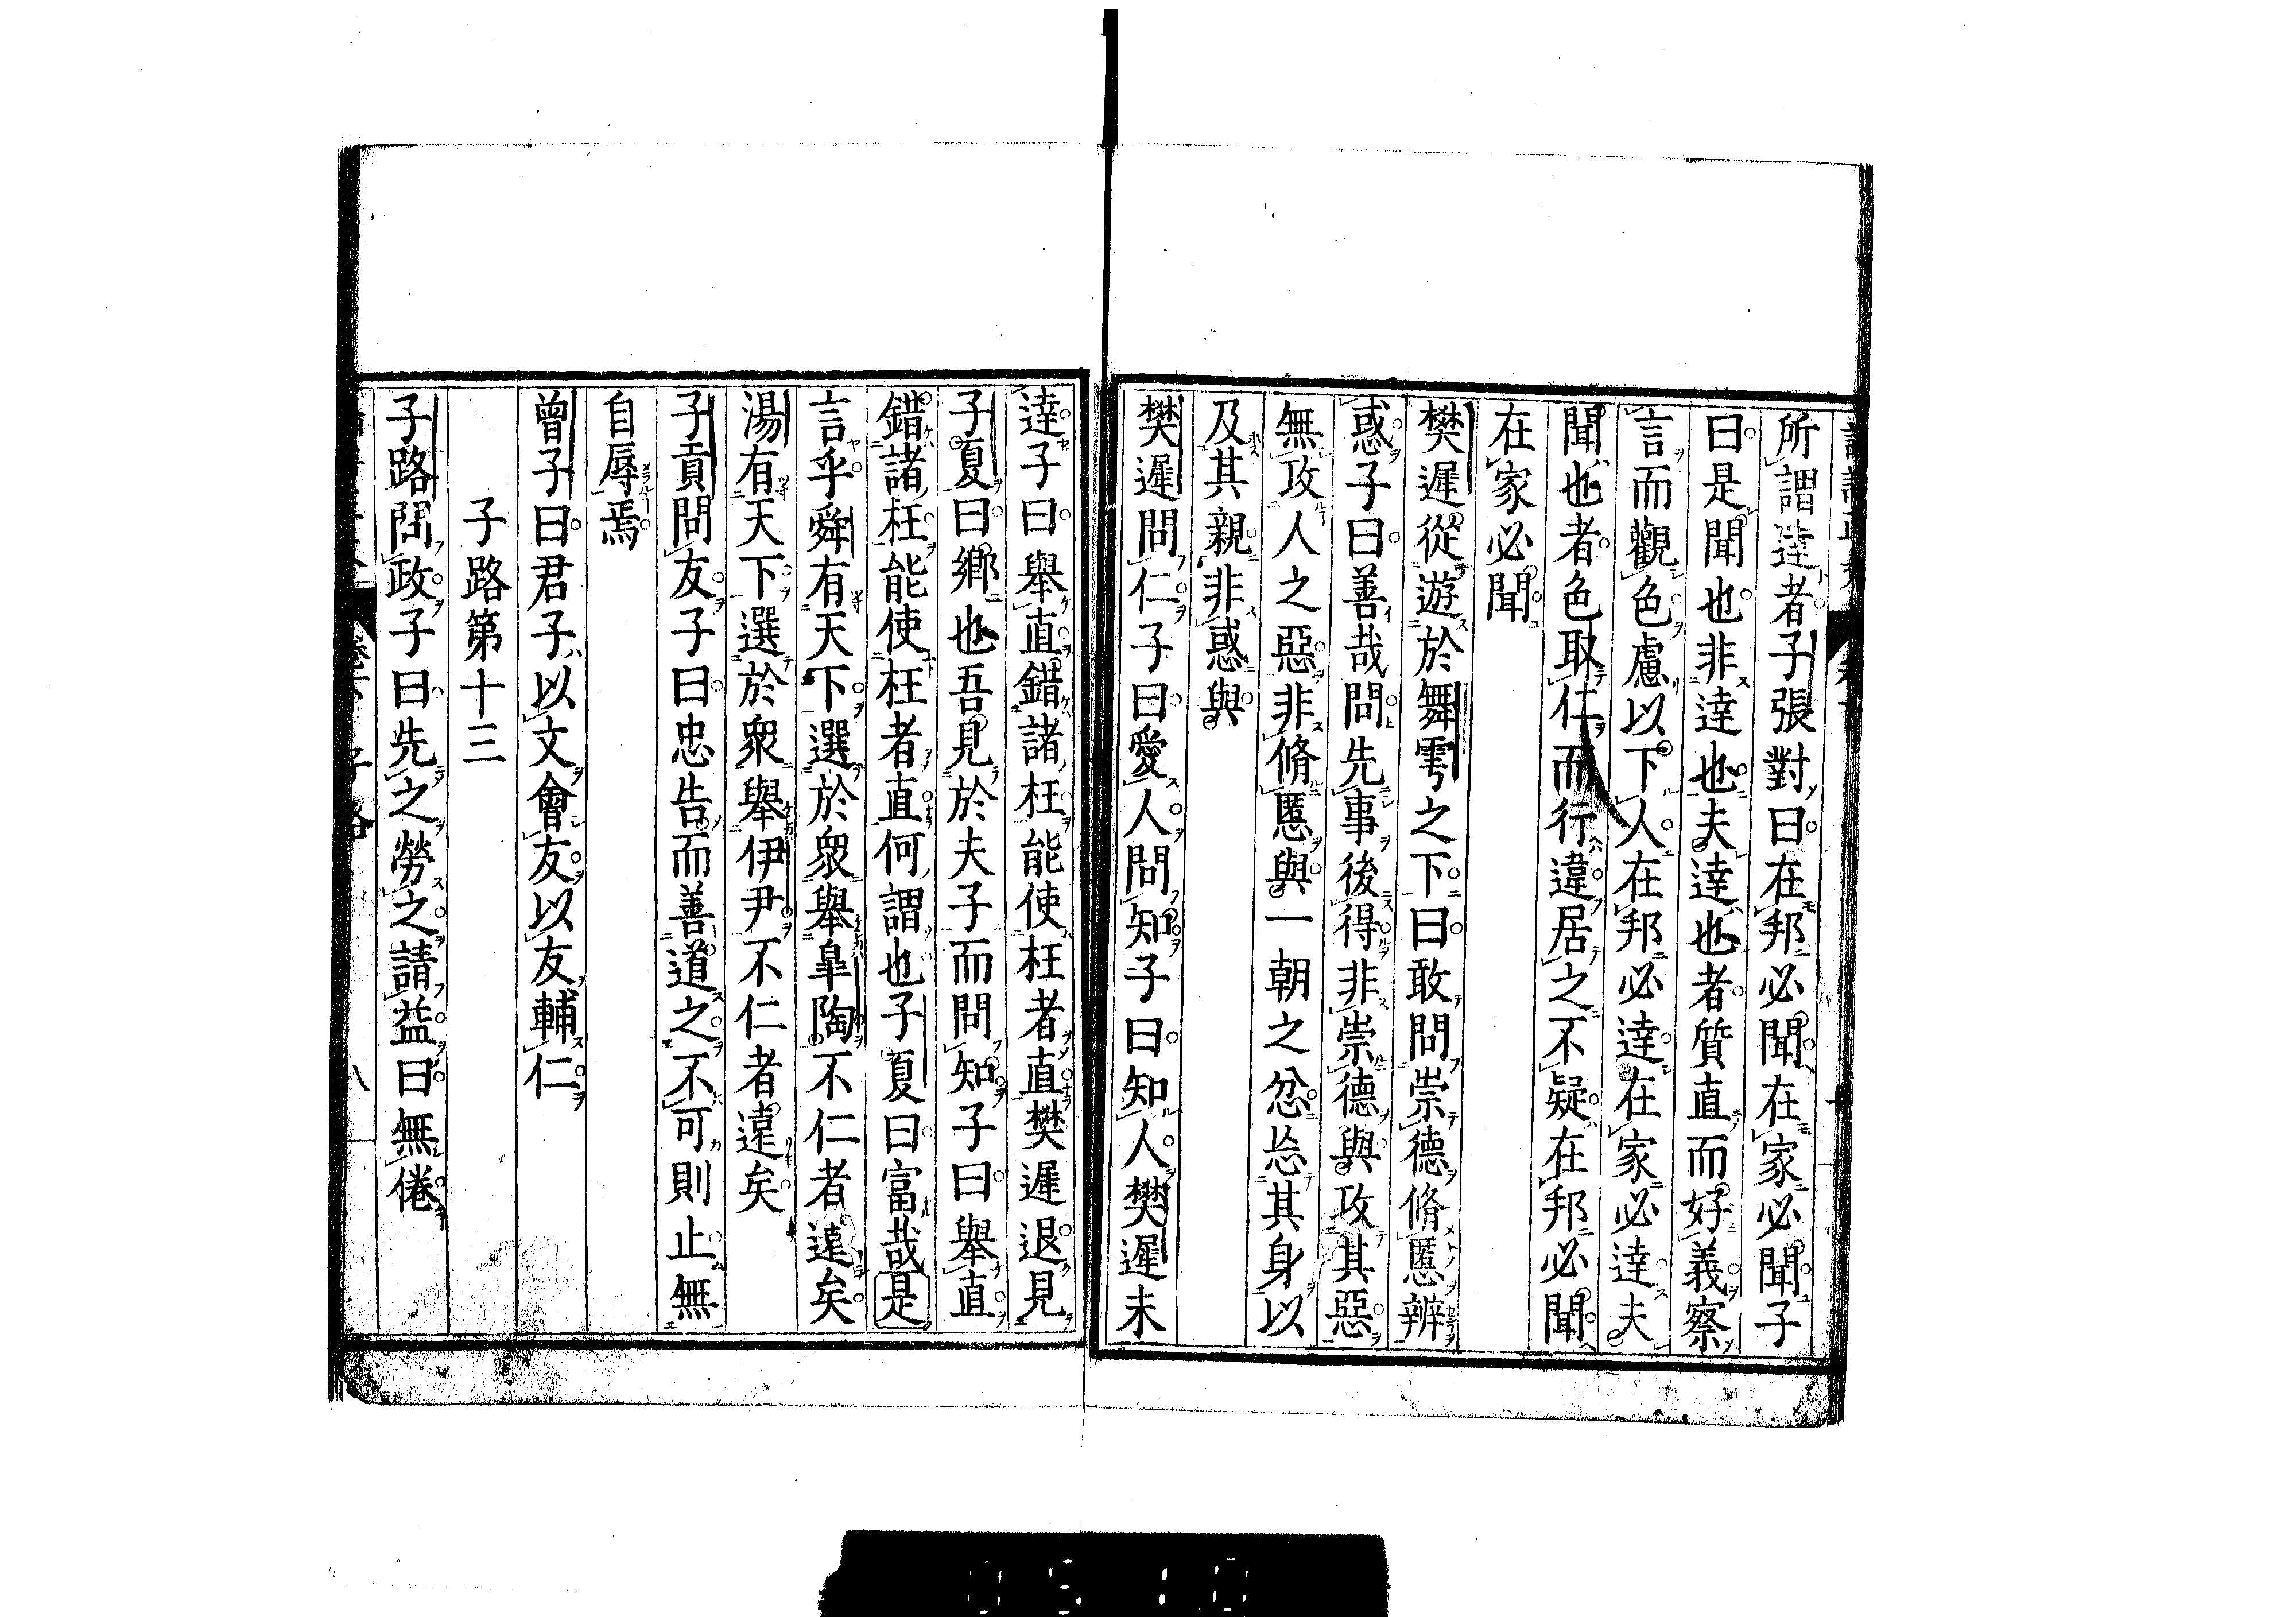 所謂達者子張對曰在邦必聞在家必聞子
曰是聞也非達也夫達也者質直而好義察
言而觀色慮以下人在邦必達在家必達夫
聞也者色取仁而行違居之不疑在邦必聞
在家必聞
樊遲從遊於舞雩之下曰敢問崇德脩慝辨
惑子曰善哉問先事後得非崇德與攻其惡
無攻人之惡非脩慝與一朝之忿忘其身以
及其親非惑與
樊遲問仁子曰愛人問知子曰知人樊遲未
達子曰舉直錯諸枉能使枉者直樊遲退見
子夏曰鄉也吾見於夫子而問知子曰舉直
錯諸枉能使枉者直何謂也子夏曰富哉是
言乎舜有天下選於眾舉皐陶不仁者遠矣
湯有天下選於眾舉伊尹不仁者遠矣
子貢問友子曰忠告而善道之不可則止無
自辱焉
曾子曰君子以文會友以友輔仁
子路第十三
子路問政子曰先之勞之請益曰無倦
子路 八
0510